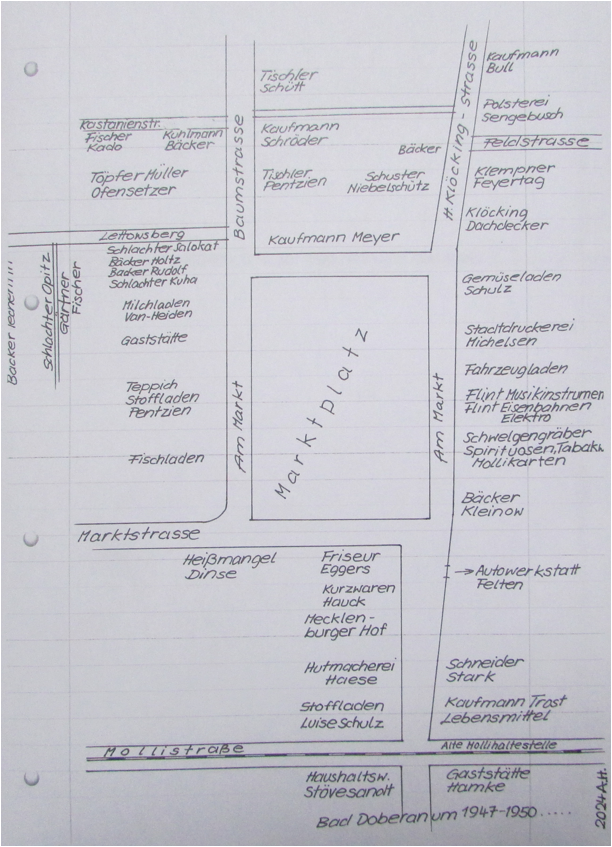 Kaufmann
Bull
Polsterei
Sengebusch
Feldstrasse
Klempner
Feyertag
Klöcking
Dachdecker
H. Klöcking-strasse
Tischler
Schütt
Kaufmann
Schröder
Bäcker
Tischler
Pentzien
Schuster
Niebelschütz
Kaufmann Meyer
Baumstrasse
Kastanienstr.
Fischer
Kado
Kuhlmann
Bäcker
Töpfer Müller
Ofensetzer
Lettowsberg
Schlachter Salokat
Bäcker Holtz
Bäcker Rudolf
Schlachter Kuha
Milchladen
Van-Heiden
Gaststätte
Teppich
Stoffladen
Pentzien
Fischladen
Bäcker
Schlachter Opitz
Gärtner
Fischer
Am Markt
Marktplatz
Am Markt
Gemüseladen
Schulz
Stadtdruckerei
Michelsen
Fahrzeugladen
Flint Musikinstrumen
Flint Eisenbahnen
Elektro
Schwelgengräber
Spirituosen, Tabakw
Mollikarten
Bäcker
Kleinow
Marktstrasse
Heißmangel
Dinse
Friseur
Eggers
Kurzwaren
Hauck
Mecklen-
burger Hof
Hutmacherei
Haese
Stoffladen
Luise Schulz
→ Autowerkstatt
Felten
Schneider
Stark
Kaufmann Trost
Lebensmittel
Mollistraße
Alte Mollihaltestelle
Haushaltsw.
Stövesandt
Gaststätte
Hamke
Bad Doberan um 1947-1950.....
2024 A.H.